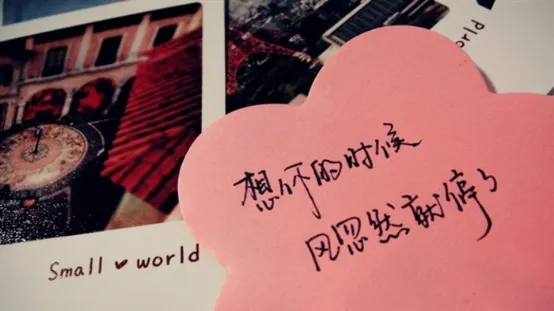 orld
想你的时候
风忽然就停了
Small ♥ world